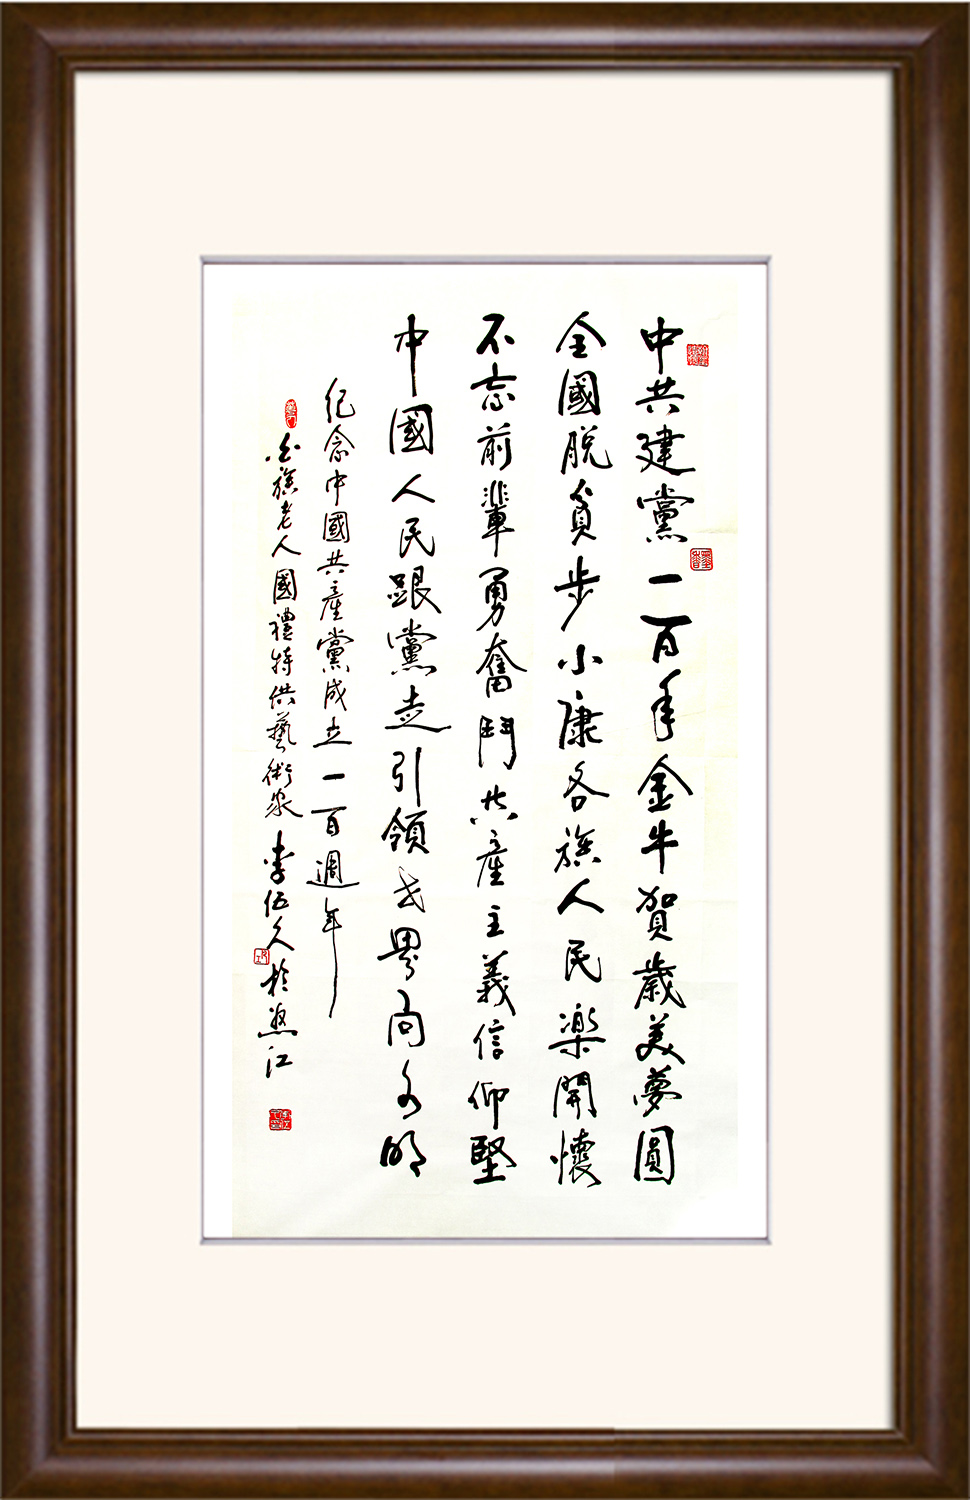 中共建黨一百年金牛賀歲美夢圓
全國脫貧步小康各族人民楽開懷
不忘前輩勇奮鬥共產主義信仰堅
中國人民跟黨走引領世界向明
紀念中國共產黨成立一百週年
白族老人國禮特供藝術家李伍久於怒江